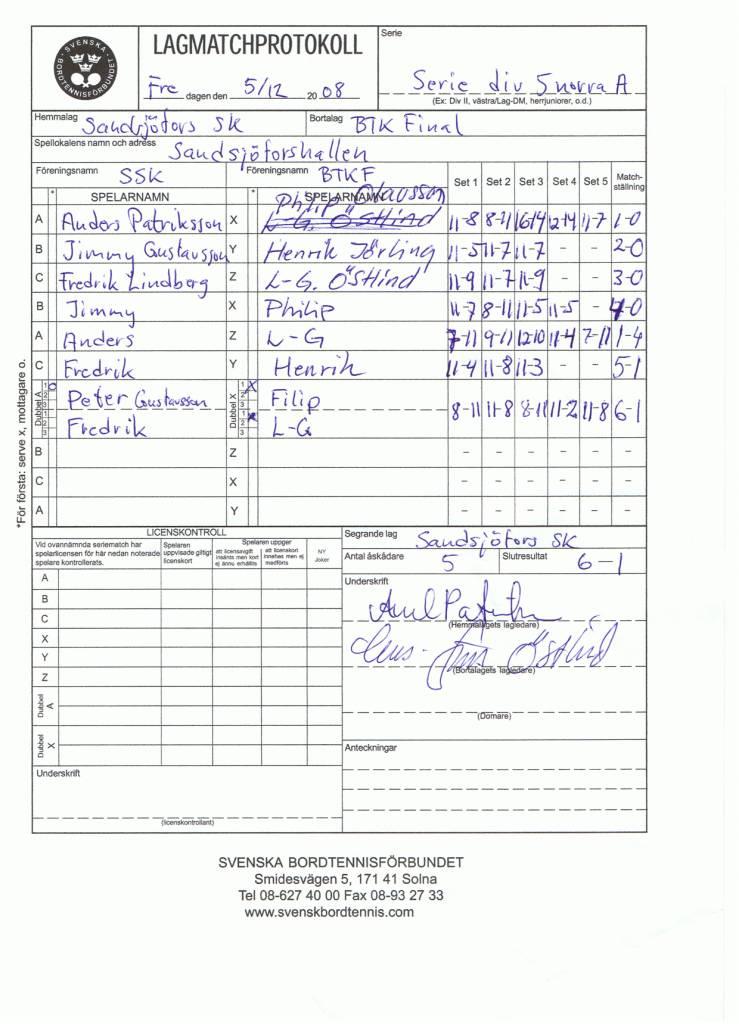 SVENSKA BORDTENNISFÖRBUNDET
LAGMATCHPROTOKOLL
Fre dagen den 5/12 20 08
Serie
Serie div 5 norra A
(Ex: Div II, västra/Lag-DM, herrjuniorer, o.d.)
Hemmalag Sandsjöfors SK Bortalag BTK Final
Spellokalens namn och adress Sandsjöforshallen
Föreningsnamn SSK Föreningsnamn BTKF Set 1 Set 2 Set 3 Set 4 Set 5 Match-ställning
* SPELARNAMN * SPELARNAMN
Philip Olausson
A Anders Patriksson X L-G. ÖSTlind 11-8 8-11 16-14 12-14 11-7 1-0
B Jimmy Gustavsson Y Henrik Jörling 11-5 11-7 11-7 - - 2-0
C Fredrik Lindberg Z L-G. ÖSTlind 11-9 11-7 11-9 - - 3-0
B Jimmy X Philip 11-7 8-11 11-5 11-5 - 4-0
A Anders Z L-G 7-11 9-11 12-10 11-4 7-11 1-4
C Fredrik Y Henrik 11-4 11-8 11-3 5-1
Dubbel A 1 2 3 o Peter Gustavsson Dubbel X 1 2 3 x Filip 8-11 11-8 8-11 11-2 11-8 6-1
1 2 3 Fredrik 1 2 3 x L-G
B Z - - - - -
C X - - - - -
A Y - - - - -
*För första: serve x, mottagare o.
LICENSKONTROLL
Vid ovannämnda seriematch har spelarlicensen för här nedan noterade spelare kontrollerats.
Spelaren uppvisade giltigt licenskort
Spelaren uppger
att licensavgift insänts men kort ej ännu erhållits
att licenskort innehas men ej medförts
NY Joker
A
B
C
X
Y
Z
Dubbel A
Dubbel X
Underskrift
(licenskontrollant)
Segrande lag Sandsjöfors SK
Antal åskådare 5 Slutresultat 6-1
Underskrift
(Hemmalagets lagledare)
ÖSTlind
(Bortalagets lagledare)
(Domare)
Anteckningar
SVENSKA BORDTENNISFÖRBUNDET
Smidesvägen 5, 171 41 Solna
Tel 08-627 40 00 Fax 08-93 27 33
www.svenskbordtennis.com